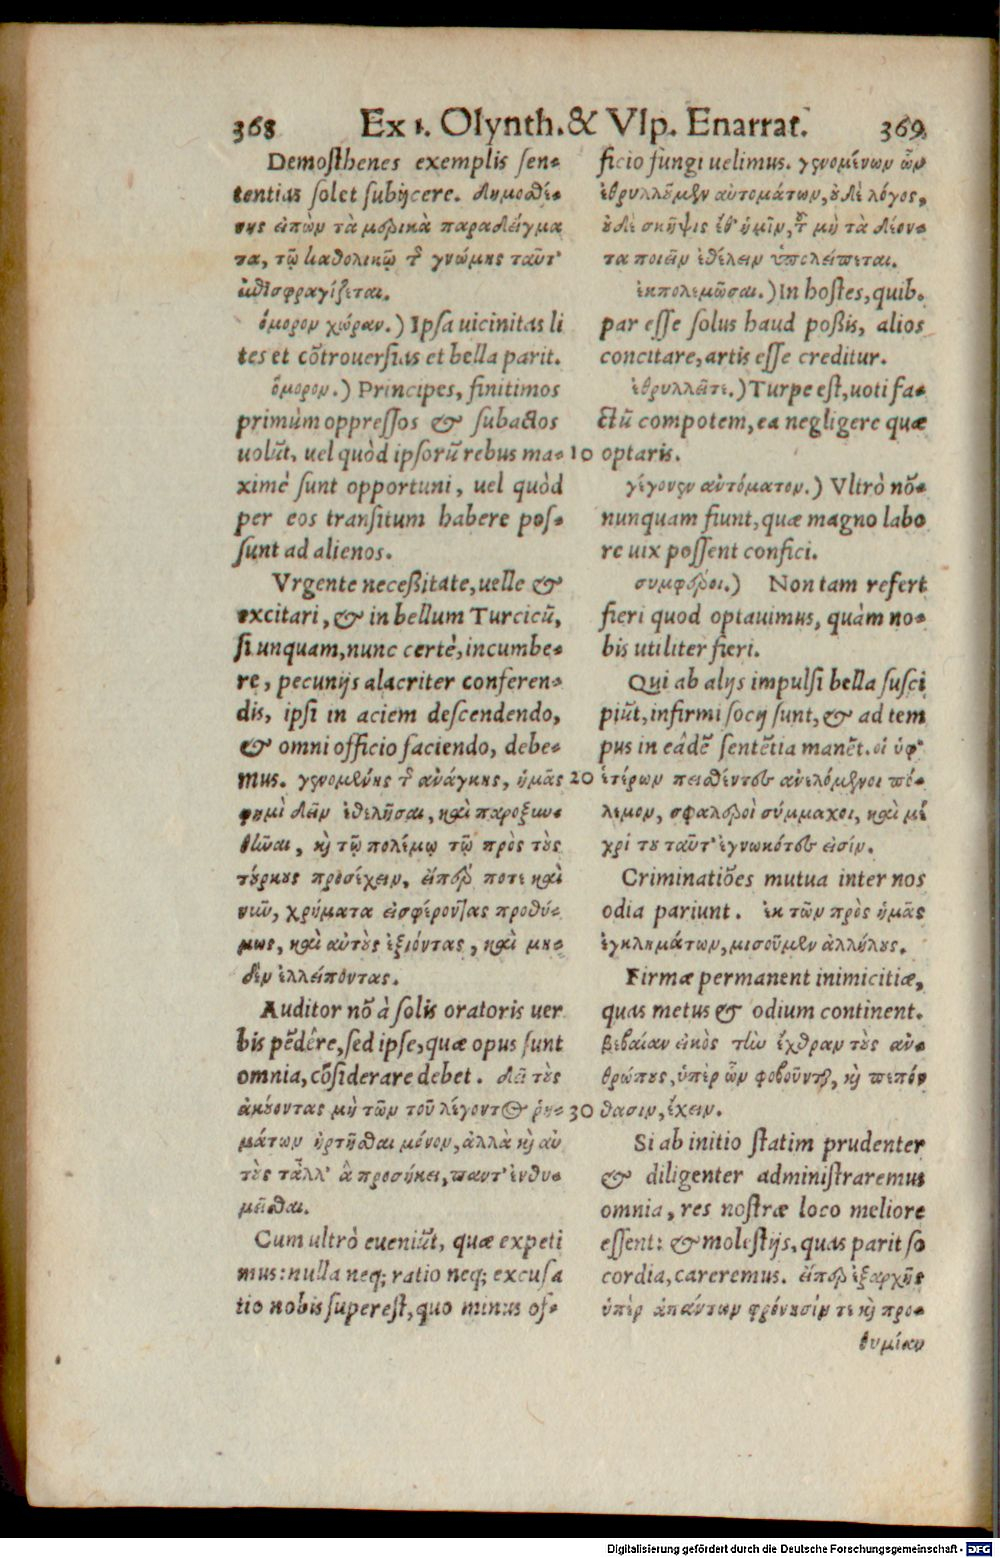 368 Ex 1. Olynth. & Vlp. Enarrat. 369
Demosthenes exemplis sen-
tentias solet subijcere. Δημοσθέ-
νης εἰπὼν τὰ μερικὰ παραδείγμα
τα, τῷ καθολικῷ τ̃ γνώμης ταῦτ'
ἐπισφραγίζεται.
ὅμορον χώραν.) Ipsa uicinitas li
tes et cõtrouersias et bella parit.
ὅμορον.) Principes, finitimos
primùm oppressos & subactos
uolũt, uel quòd ipsorũ rebus ma-
ximè sunt opportuni, uel quòd
per eos transitum habere pos-
sunt ad alienos.
Vrgente necessitate, uelle &
excitari, & in bellum Turcicũ,
si unquam, nunc certè, incumbe-
re, pecunijs alacriter conferen-
dis, ipsi in aciem descendendo,
& omni officio faciendo, debe-
mus. γενομένης τ̃ ἀνάγκης, ὑμᾶς
φημὶ δεῖν ἐθελῆσαι, καὶ παροξυν-
θῆναι, κὶ τῷ πολέμῳ τῷ πρὸς τὸς
τόρκους προσέχειν, εἴπερ ποτε καὶ
νῦν, χρήματα εἰσφέροντας προθύ-
μως, καὶ αὐτὸς ἐξιόντας, καὶ μη-
δὲν ἐλλείποντας.
Auditor nõ à solis oratoris uer
bis pẽdêre, sed ipse, quæ opus sunt
omnia, cõsiderare debet. δεῖ τὸς
ἀκούοντας μὴ τῶν τοῦ λέγοντος ῥη-
μάτων ἠρτῆσθαι μόνον, ἀλλὰ κὶ αὐ
τὸς τἆλλ' ἃ προσήκει, παντ' ἐνθυ-
μεῖσθαι.
Cum ultrò eueniũt, quæ expeti
mus: nulla neq; ratio neq; excusa
tio nobis superest, quo minus of-
ficio fungi uelimus. γενομένων ὧν
ἐθρυλλοῦμεν αὐτομάτων, ὀδὲ λόγος,
ὀδὲ σκῆψις ἔθ' ἡμῖν, τ̃ μὴ τὰ δέον-
τα ποιεῖν ἐθέλειν ὑπολείπεται.
ἐκπολεμῶσαι.) In hostes, quib.
par esse solus haud possis, alios
concitare, artis esse creditur.
ἐθρυλλεῖτε.) Turpe est, uoti fa-
ctũ compotem, ea negligere quæ
10 optaris.
γέγονεν αὐτόματον.) Vltrò nõ-
nunquam fiunt, quæ magno labo
re uix possent confici.
συμφέροι.) Non tam refert
fieri quod optauimus, quàm no-
bis utiliter fieri.
Qui ab alijs impulsi bella susci
piũt, infirmi socij sunt, & ad tem
pus in eâdẽ sentẽtia manẽt. οἱ ὑφ'
20 ἑτέρων πεισθέντες ἀνελόμενοι πό-
λεμον, σφαλεροὶ σύμμαχοι, καὶ μέ
χρι του ταῦτ' ἐγνωκότες εἰσίν.
Criminatiões mutua inter nos
odia pariunt. ἐκ τῶν πρὸς ἡμᾶς
ἐγκλημάτων, μισοῦμεν ἀλλήλους.
Firmæ permanent inimicitiæ,
quas metus & odium continent.
βεβαίαν εἰκὸς τὴν ἔχθραν τὸς ἀν-
θρώπους, ὑπὲρ ὧν φοβοῦνται, κὶ πεπόν
30 θασιν, ἔχειν.
Si ab initio statim prudenter
& diligenter administraremus
omnia, res nostræ loco meliore
essent: & molestijs, quas parit so
cordia, careremus. εἴπερ ἐξαρχῆς
ὑπὲρ ἁπάντων φρόνησίν τε κὶ προ-
θυμίαν
Digitalisierung gefördert durch die Deutsche Forschungsgemeinschaft - DFG